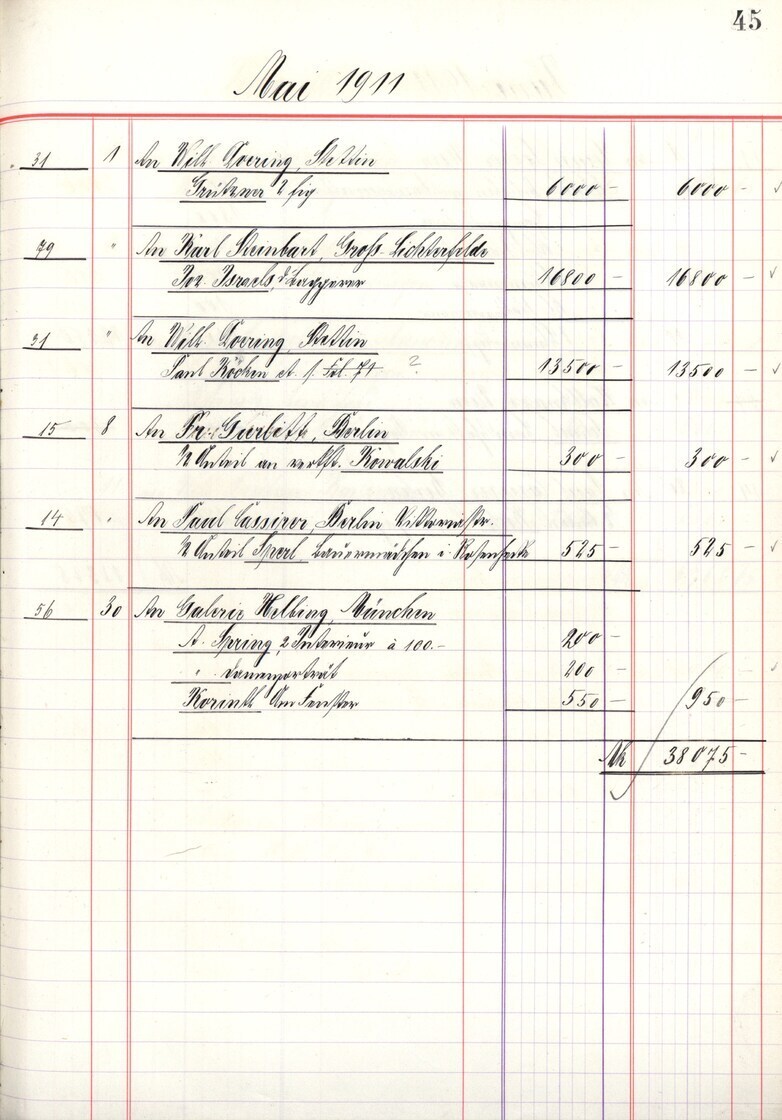 45
Mai 1911
31 1 An Wilh. Doering, Stettin
Grützner 2 fig 6000 – 6000 –
79 " An Karl Steinbart, Groß-Lichterfelde
Joz. Israels, 16800 – 16800 –
31 " An Wilh. Doering, Stettin
Paul 13500 – 13500 –
15 8 An Fr. Gurlitt, Berlin
½ Anteil an verkft. Kowalski 300 – 300 –
14 " An Paul Cassirer, Berlin Viktoriastr.
½ Anteil Sperl, Bauernmädchen i. Rosenhecke 525 – 525 –
56 30 An Galerie Helbing, München
A. Spring, 2 Interieur à 100.– 200 –
" Damenportrait 200 –
Korinth Am Fenster 550 – 950 –
Mk 38075 –